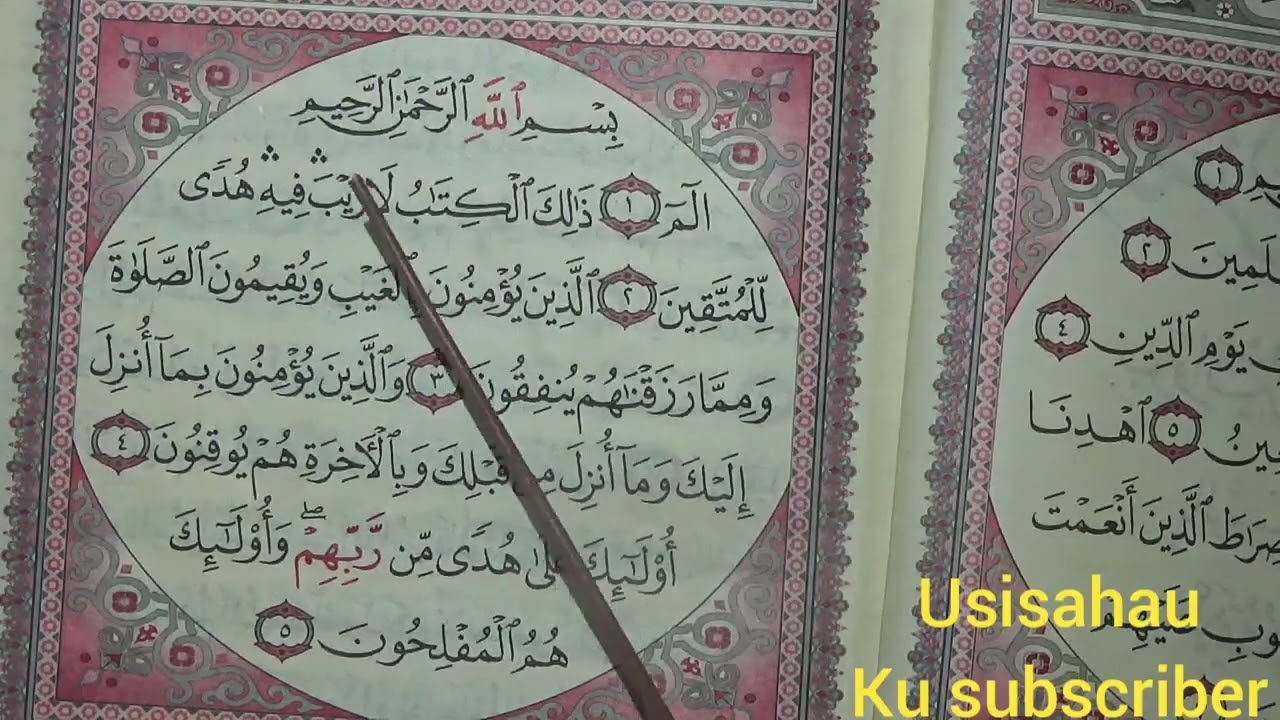 بِسْمِ ٱللَّهِ ٱلرَّحْمَٰنِ ٱلرَّحِيمِ
الٓمٓ ١ ذَٰلِكَ ٱلْكِتَٰبُ لَا رَيْبَ ۛ فِيهِ ۛ هُدًى
لِّلْمُتَّقِينَ ٢ ٱلَّذِينَ يُؤْمِنُونَ بِٱلْغَيْبِ وَيُقِيمُونَ ٱلصَّلَوٰةَ
وَمِمَّا رَزَقْنَٰهُمْ يُنفِقُونَ ٣ وَٱلَّذِينَ يُؤْمِنُونَ بِمَآ أُنزِلَ
إِلَيْكَ وَمَآ أُنزِلَ مِن قَبْلِكَ وَبِٱلْءَاخِرَةِ هُمْ يُوقِنُونَ ٤
أُو۟لَٰٓئِكَ عَلَىٰ هُدًى مِّن رَّبِّهِمْ ۖ وَأُو۟لَٰٓئِكَ
هُمُ ٱلْمُفْلِحُونَ ٥
١
٢
يَوْمِ ٱلدِّينِ ٤
٥ ٱهْدِنَا
صِرَٰطَ ٱلَّذِينَ أَنْعَمْتَ
Usisahau
Ku subscriber